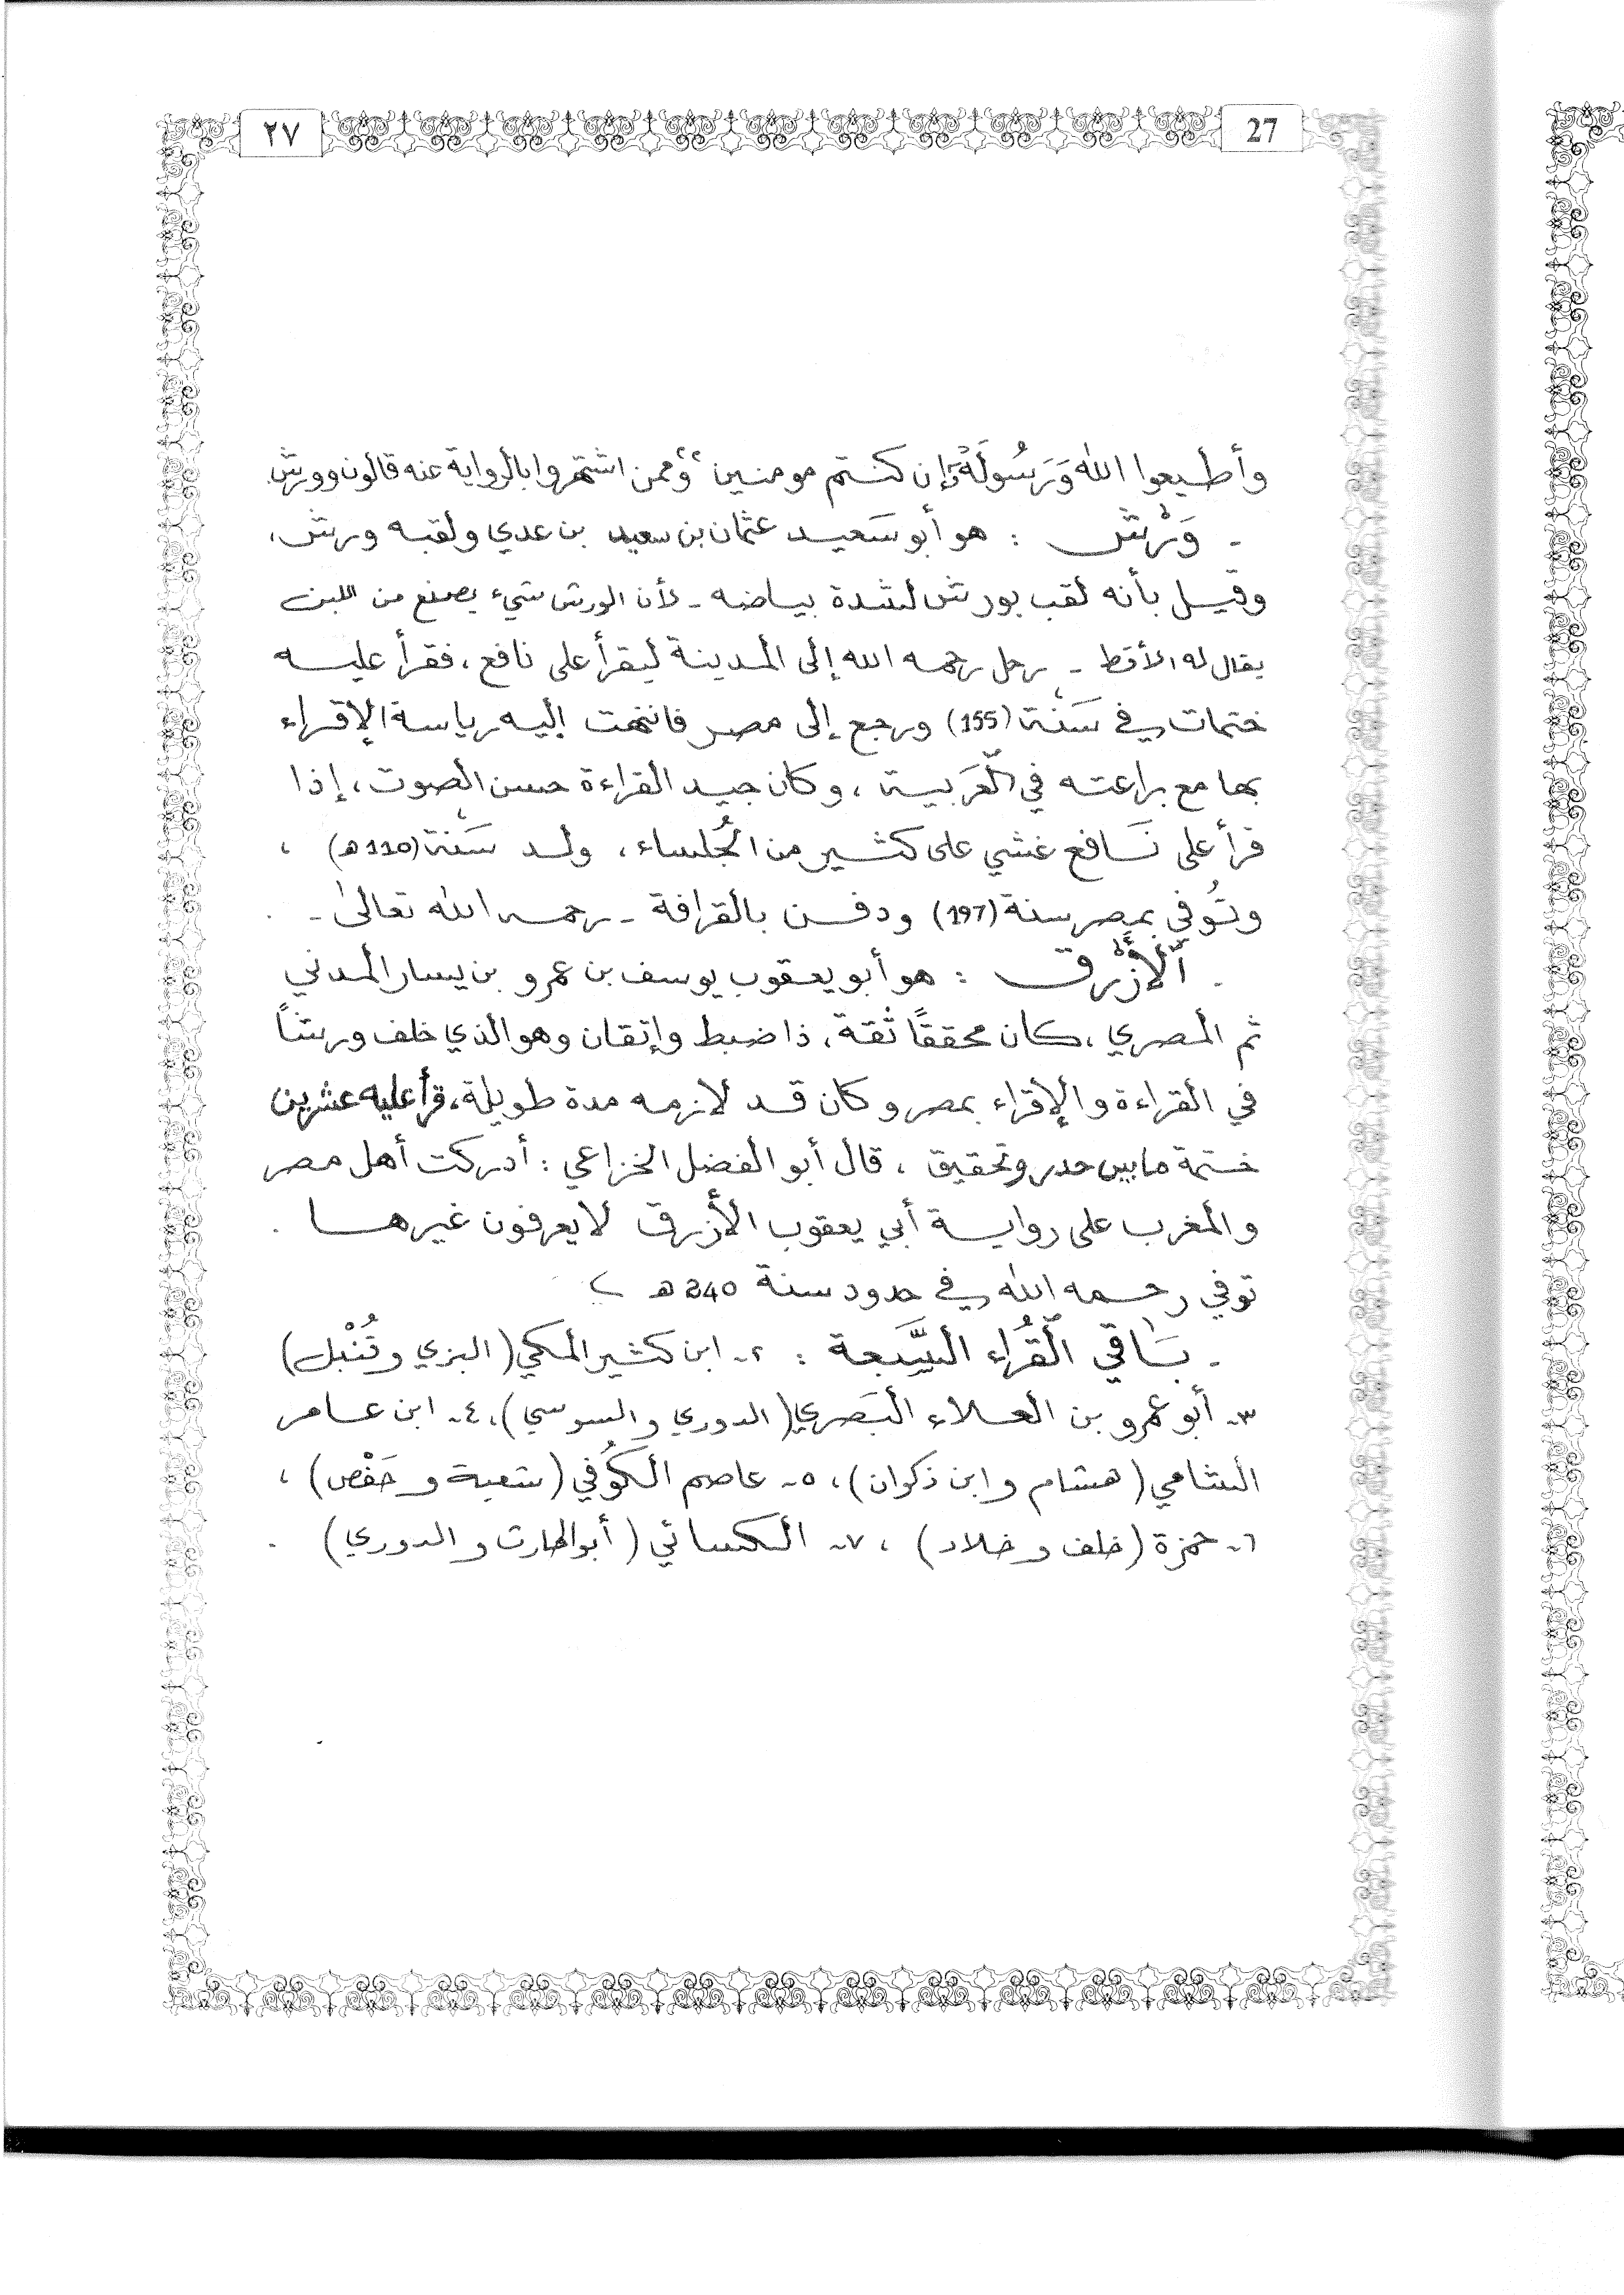 ٢٧ 27
وأطيعوا الله وَرَسُولَهُ إن كنتم مومنين ” وممن اشتهروا بالرواية عنه قالون وورش.
- وَرْش : هو أبو سَعيد عثمان بن سعيد بن عدي ولقبه ورش،
وقيل بأنه لقب بورش لشدة بياضه - لأن الورش شيء يصنع من اللبن
يقال له الأقط - رحل رحمه الله إلى المدينة ليقرأ على نافع، فقرأ عليه
ختمات في سَنة (155) ورجع إلى مصر فانتهت إليه رياسة الإقراء
بها مع براعته في العَربية، وكان جيد القراءة حسن الصوت، إذا
قرأ على نَافع غشي على كثير من الجُلساء، ولد سَنة (110 ه) ،
وتُوفي بمصر سنة (197) ودفن بالقرافة - رحمه الله تعالى -.
- الأزْرق : هو أبو يعقوب يوسف بن عمرو بن يسار المدني
ثم المصري، كان محققاً ثقة، ذا ضبط وإتقان وهو الذي خلف ورشاً
في القراءة والإقراء بمصر وكان قد لازمه مدة طويلة، قرأ عليه عشرين
ختمة ما بين حدر وتحقيق ، قال أبو الفضل الخزاعي : أدركت أهل مصر
والمغرب على رواية أبي يعقوب الأزرق لا يعرفون غيرها .
توفي رحمه الله في حدود سنة 240 ه
- بَاقي القُراء السَّبعة : ٢- ابن كثير المكي (البزي وقُنْبل)
٣- أبو عمرو بن العلاء البَصري (الدوري والسوسي)، ٤- ابن عامر
الشامي (هشام وابن ذكوان)، ٥- عاصم الكُوفي (شعبة وحَفْص) ،
٦- حمزة (خلف وخلاد) ، ٧- الكسائي (أبو الحارث والدوري) .